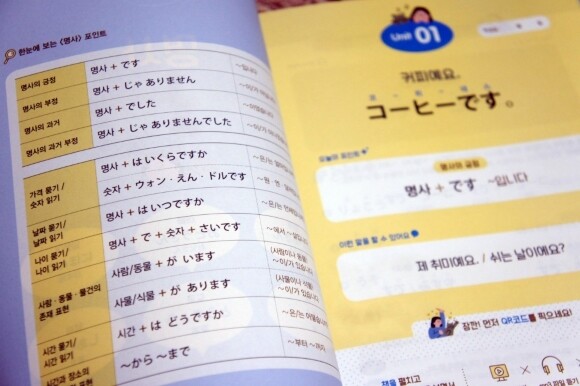 한눈에 보는 <명사> 포인트
명사의 긍정 명사 + です ~입니다
명사의 부정 명사 + じゃ ありません
명사의 과거 명사 + でした
명사의 과거 부정 명사 + じゃ ありませんでした
가격 묻기/ 명사 + は いくらですか
숫자 읽기 숫자 + ウォン・えん・ドルです
날짜 묻기/ 명사 + は いつですか
날짜 읽기
나이 묻기/ 명사 + で + 숫자 + さいです
나이 읽기
사람·동물·물건의 사람/동물 + が います
존재 표현 사물/식물 + が あります
시간 묻기/ 시간 + は どうですか
시간 읽기
시간과 장소의 ~から ~まで ~부터 ~까지
Unit 01
커피예요.
コーヒーです。
오늘의 포인트
명사의 긍정
명사 + です ~입니다
이런 말을 할 수 있어요
제 취미예요. / 쉬는 날이에요?
잠깐! 먼저 QR코드를 찍으세요!
책을 펼치고